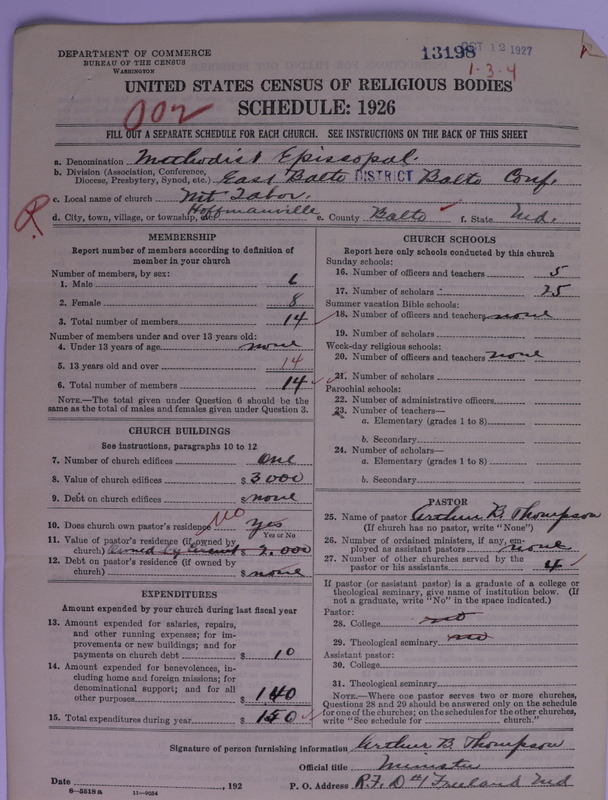 DEPARTMENT OF COMMERCE
BUREAU OF THE CENSUS
WASHINGTON
13198 OCT 12 1927
1-3-4
UNITED STATES CENSUS OF RELIGIOUS BODIES
002
SCHEDULE: 1926
FILL OUT A SEPARATE SCHEDULE FOR EACH CHURCH. SEE INSTRUCTIONS ON THE BACK OF THIS SHEET
a. Denomination Methodist Episcopal.
b. Division (Association, Conference, Diocese, Presbytery, Synod, etc.) East Balto DISTRICT Balto Conf.
c. Local name of church Mt Tabor.
R
d. City, town, village, or township, etc. Hoffmanville e. County Balto f. State Md.
MEMBERSHIP
Report number of members according to definition of
member in your church
Number of members, by sex:
1. Male 6
2. Female 8
3. Total number of members 14
Number of members under and over 13 years old:
4. Under 13 years of age none
5. 13 years old and over 14
6. Total number of members 14
NOTE.—The total given under Question 6 should be
same as the total of males and females given under Question 3.
CHURCH BUILDINGS
See instructions, paragraphs 10 to 12
7. Number of church edifices One
8. Value of church edifices $ 3000
9. Debt on church edifices $ none
10. Does church own pastor's residence No yes
Yes or No
11. Value of pastor's residence (if owned by
church) Owned by Circuit $ 2.000
12. Debt on pastor's residence (if owned by
church) $ none
EXPENDITURES
Amount expended by your church during last fiscal year
13. Amount expended for salaries, repairs,
and other running expenses; for im-
provements or new buildings; and for
payments on church debt $ 10
14. Amount expended for benevolences, in-
cluding home and foreign missions; for
denominational support; and for all
other purposes $ 140
15. Total expenditures during year $ 150
CHURCH SCHOOLS
Report here only schools conducted by this church
Sunday schools:
16. Number of officers and teachers 5
17. Number of scholars 25
Summer vacation Bible schools:
18. Number of officers and teachers none
19. Number of scholars
Week-day religious schools:
20. Number of officers and teachers none
21. Number of scholars
Parochial schools:
22. Number of administrative officers
23. Number of teachers—
a. Elementary (grades 1 to 8)
b. Secondary
24. Number of scholars—
a. Elementary (grades 1 to 8)
b. Secondary
PASTOR
25. Name of pastor Arthur B. Thompson
(If church has no pastor, write "None")
26. Number of ordained ministers, if any, em-
ployed as assistant pastors none
27. Number of other churches served by the
pastor or his assistants 4
If pastor (or assistant pastor) is a graduate of a college or
theological seminary, give name of institution below. (If
not a graduate, write "No" in the space indicated.)
Pastor:
28. College no
29. Theological seminary no
Assistant pastor:
30. College
31. Theological seminary
NOTE.—Where one pastor serves two or more churches,
Questions 28 and 29 should be answered only on the schedule
for one of the churches; on the schedules for the other churches,
write "See schedule for church."
Signature of person furnishing information Arthur B. Thompson
Official title Minister
Date , 192 P. O. Address R.F.D #1 Freeland Md
8-5518 a 11-9054